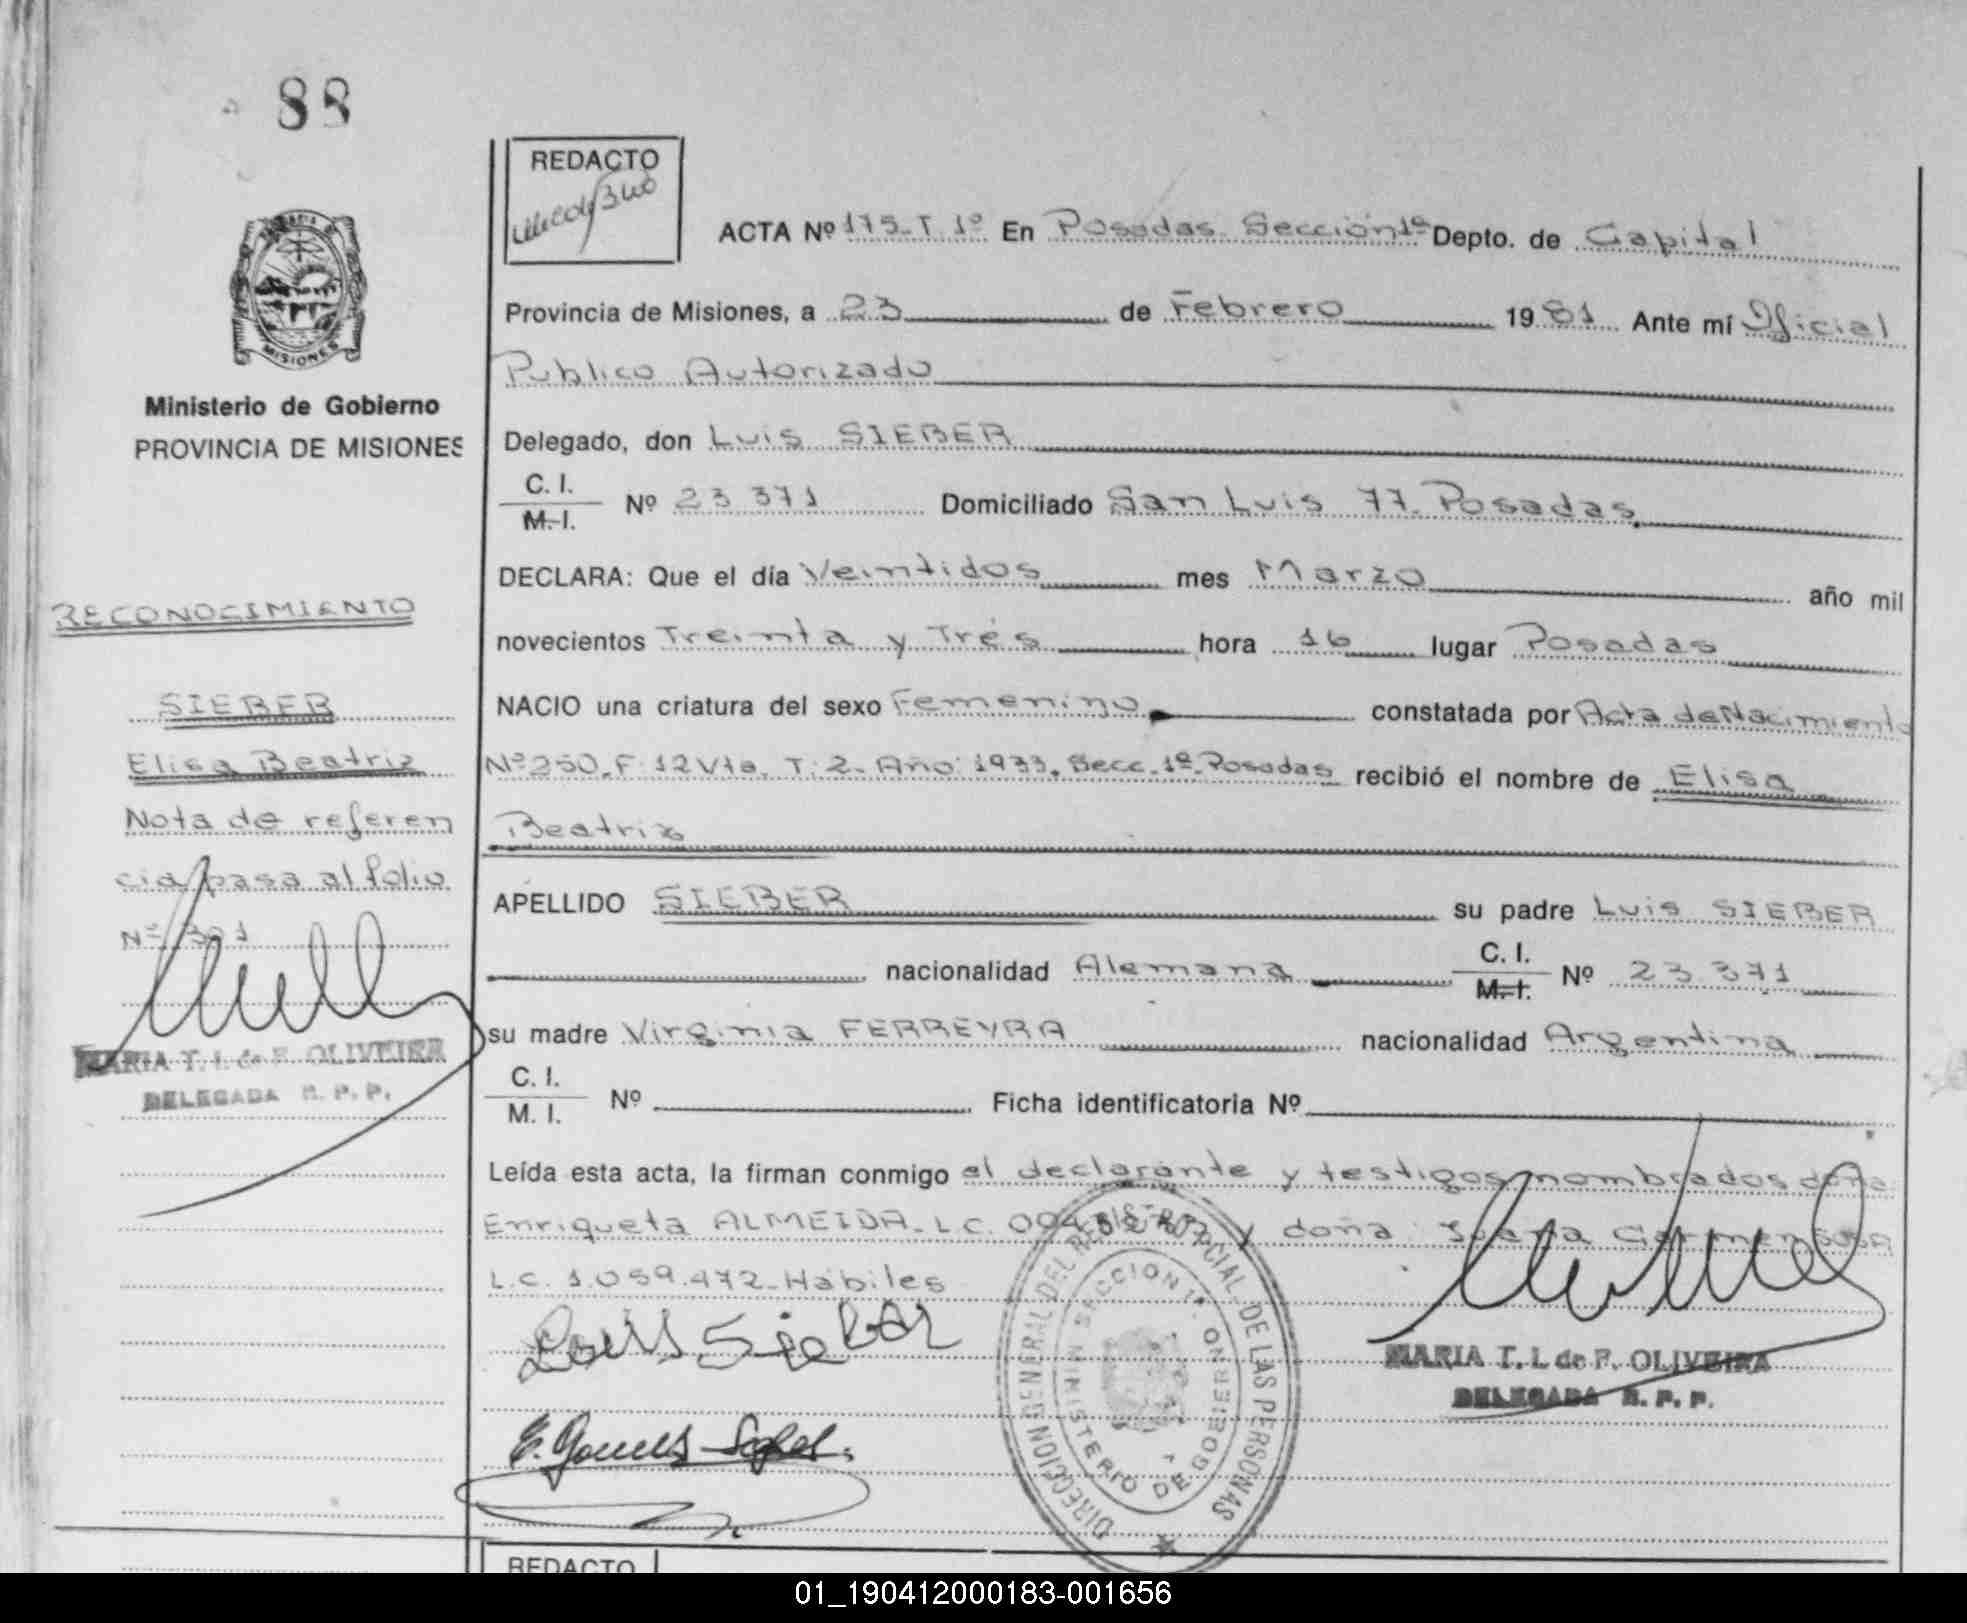 88
REDACTO
ACTA Nº 175-T. 1º En Posadas Sección 1ª Depto. de Capital
Provincia de Misiones, a 23 de Febrero 1981 Ante mí Oficial
Publico Autorizado
MISIONES
Ministerio de Gobierno
PROVINCIA DE MISIONES
Delegado, don Luis SIEBER
C. I.
M. I. Nº 23.371 Domiciliado San Luis 77. Posadas
DECLARA: Que el día Veintidos mes Marzo año mil
RECONOCIMIENTO
novecientos Treinta y Trés hora 16 lugar Posadas
SIEBER
NACIO una criatura del sexo Femenino constatada por Acta de Nacimiento
Elisa Beatriz
Nº 250. F: 12 Vta. T: 2. Año: 1933. Secc. 1ª Posadas recibió el nombre de Elisa
Nota de referen
Beatriz
cia pasa al folio
APELLIDO SIEBER su padre Luis SIEBER
Nº 391
nacionalidad Alemana C. I.
M. I. Nº 23.371
su madre Virginia FERREYRA nacionalidad Argentina
MARIA T. I. de F. OLIVEIRA
DELEGADA R. P. P.
C. I.
M. I. Nº Ficha identificatoria Nº
Leída esta acta, la firman conmigo el declarante y testigos nombrados doña
Enriqueta ALMEIDA. L.C. y doña
L.C. 1.059.472. Habiles
Louis Sieber
MARIA T. I. de F. OLIVEIRA
DELEGADA R. P. P.
DIRECCION GENERAL DEL REGISTRO PCIAL. DE LAS PERSONAS
SECCION 1ª
MINISTERIO DE GOBIERNO
REDACTO
01_190412000183-001656